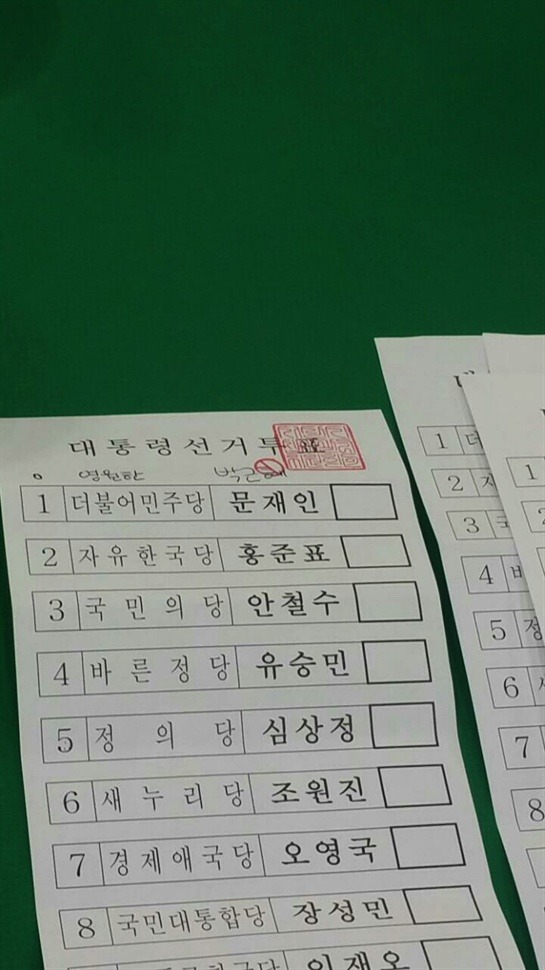 대통령선거투표
0 영원한 박근혜
1 더불어민주당 문재인
2 자유한국당 홍준표
3 국민의당 안철수
4 바른정당 유승민
5 정의당 심상정
6 새누리당 조원진
7 경제애국당 오영국
8 국민대통합당 장성민
이재오
1 더
2 자
3 국
4 바
5 정
6
7
8
1